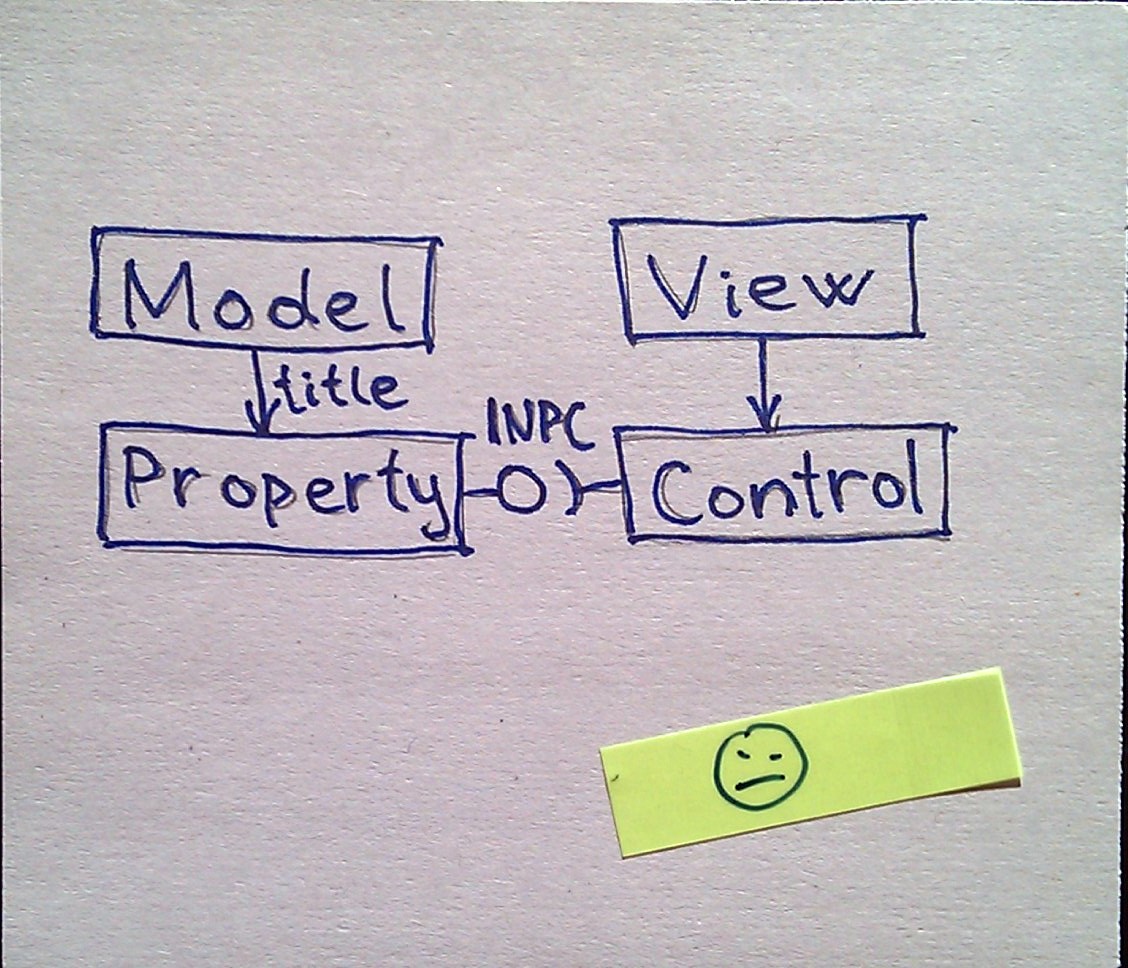 Model
View
title
INPC
Property
Control